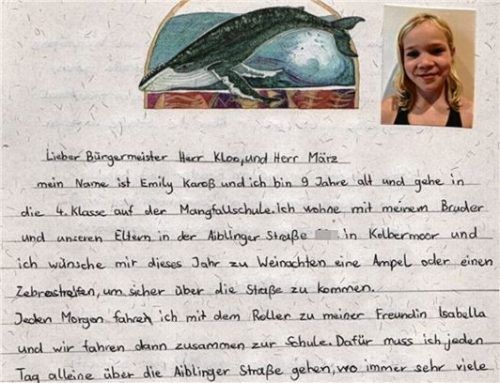 Lieber Bürgermeister Herr Kloo, und Herr März
mein Name ist Emily Karoß und ich bin 9 Jahre alt und gehe in
die 4. Klasse auf der Mangfallschule. Ich wohne mit meinem Bruder
und unseren Eltern in der Aiblinger Straße in Kolbermoor und
ich wünsche mir dieses Jahr zu Weinachten eine Ampel oder einen
Zebrastreifen, um sicher über die Straße zu kommen.
Jeden Morgen fahreh ich mit dem Roller zu meiner Freundin Isabella
und wir fahren dann zusammen zur Schule. Dafür muss ich jeden
Tag alleine über die Aiblinger Straße gehen, wo immer sehr viele